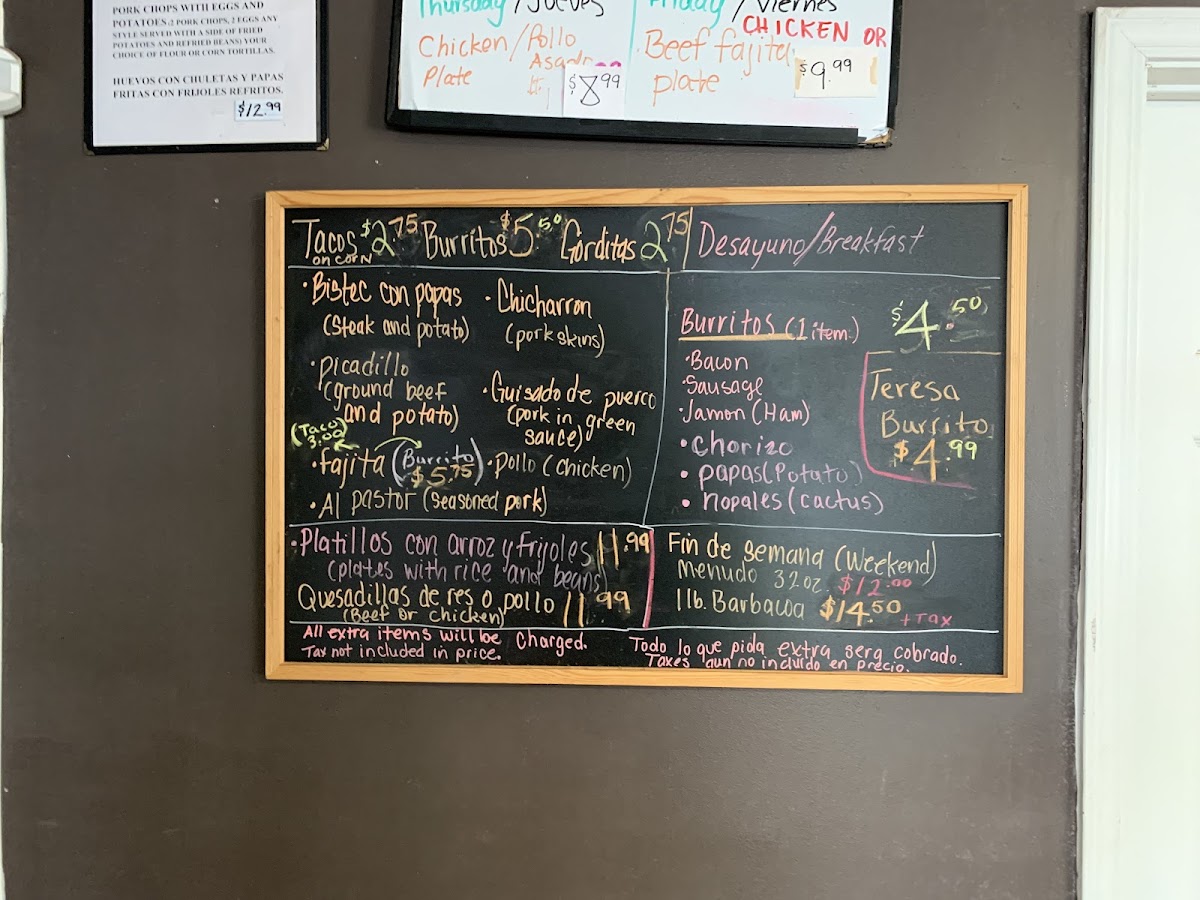 PORK CHOPS WITH EGGS AND
POTATOES (2 PORK CHOPS, 2 EGGS ANY
STYLE SERVED WITH A SIDE OF FRIED
POTATOES AND REFRIED BEANS) YOUR
CHOICE OF FLOUR OR CORN TORTILLAS.
HUEVOS CON CHULETAS Y PAPAS
FRITAS CON FRIJOLES REFRITOS.
$12.99
Thursday/Jueves
Chicken/Pollo
Asado
Plate
$8.99
Friday/Viernes
CHICKEN OR
Beef fajita
plate
$9.99
Tacos $2.75 Burritos $5.50 Gorditas 2.75
on corn
• Bistec con papas
(Steak and potato)
• picadillo
(ground beef
and potato)
(Taco
3.00)
• fajita (Burrito
$5.75)
• Al pastor (seasoned pork)
• Chicharron
(pork skins)
• Guisado de puerco
(pork in green
sauce)
• pollo (chicken)
Desayuno/Breakfast
Burritos (1 item) $4.50
• Bacon
• Sausage
• Jamon (Ham)
• chorizo
• papas (Potato)
• nopales (cactus)
Teresa
Burrito
$4.99
• Platillos con arroz y frijoles 11.99
(plates with rice and beans)
Quesadillas de res o pollo 11.99
(Beef or chicken)
Fin de semana (Weekend)
menudo 32oz. $12.00
1 lb. Barbacoa $14.50 + Tax
All extra items will be charged.
Tax not included in price.
Todo lo que pida extra sera cobrado.
Taxes aun no incluido en precio.